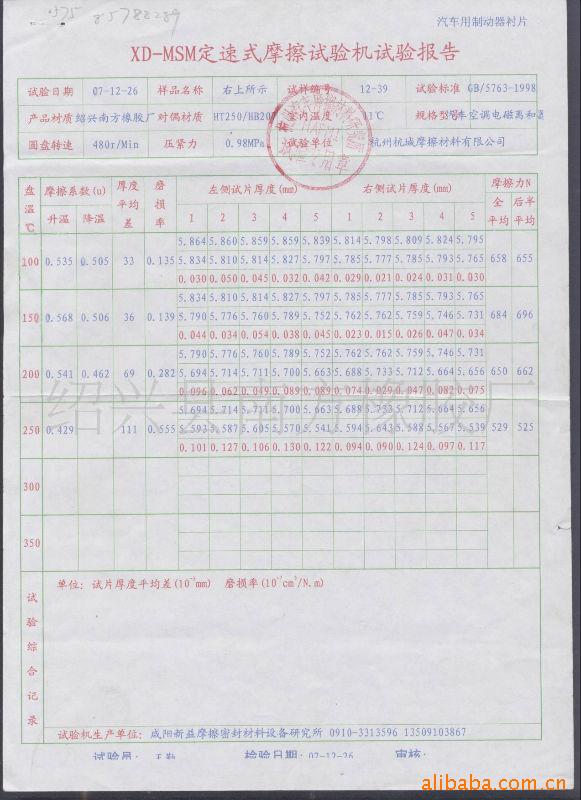 85788289
汽车用制动器衬片
XD-MSM定速式摩擦试验机试验报告
试验日期 07-12-26 样品名称 右上所示 试样编号 12-39 试验标准 GB/5763-1998
产品材质 绍兴南方橡胶厂 对偶材质 HT250/HB207 室内温度 11℃ 规格型号 车空调电磁离和器
圆盘转速 480r/Min 压紧力 0.98MPa 试验单位 杭州杭城摩擦材料有限公司
盘温℃ 摩擦系数(u) 厚度平均差 磨损率 左侧试片厚度(mm) 右侧试片厚度(mm) 摩擦力N
升温 降温 1 2 3 4 5 1 2 3 4 5 全平均 后半平均
5.864 5.860 5.859 5.859 5.839 5.814 5.798 5.809 5.824 5.795
100 0.535 0.505 33 0.135 5.834 5.810 5.814 5.827 5.797 5.785 5.777 5.785 5.793 5.765 658 655
0.030 0.050 0.045 0.032 0.042 0.029 0.021 0.024 0.031 0.030
5.834 5.810 5.814 5.827 5.797 5.785 5.777 5.785 5.793 5.765
150 0.568 0.506 36 0.139 5.790 5.776 5.760 5.789 5.752 5.762 5.762 5.759 5.746 5.731 684 696
0.044 0.034 0.054 0.038 0.045 0.023 0.015 0.026 0.047 0.034
5.790 5.776 5.760 5.789 5.752 5.762 5.762 5.759 5.746 5.731
200 0.541 0.462 69 0.282 5.694 5.714 5.711 5.700 5.663 5.688 5.733 5.712 5.664 5.656 650 662
0.096 0.062 0.049 0.089 0.089 0.074 0.029 0.047 0.082 0.075
5.694 5.714 5.711 5.700 5.663 5.688 5.733 5.712 5.664 5.656
250 0.429 111 0.555 5.593 5.587 5.605 5.570 5.541 5.594 5.643 5.588 5.567 5.539 529 525
0.101 0.127 0.106 0.130 0.122 0.094 0.090 0.124 0.097 0.117
300
350
绍兴县南方橡胶厂
试验综合记录
单位: 试片厚度平均差(10⁻³mm) 磨损率(10⁻⁷cm³/N.m)
试验机生产单位: 咸阳新益摩擦密封材料设备研究所 0910-3313596 13509103867
试验员: 王勤 检验日期: 07-12-26 审核:
alibaba.com.cn